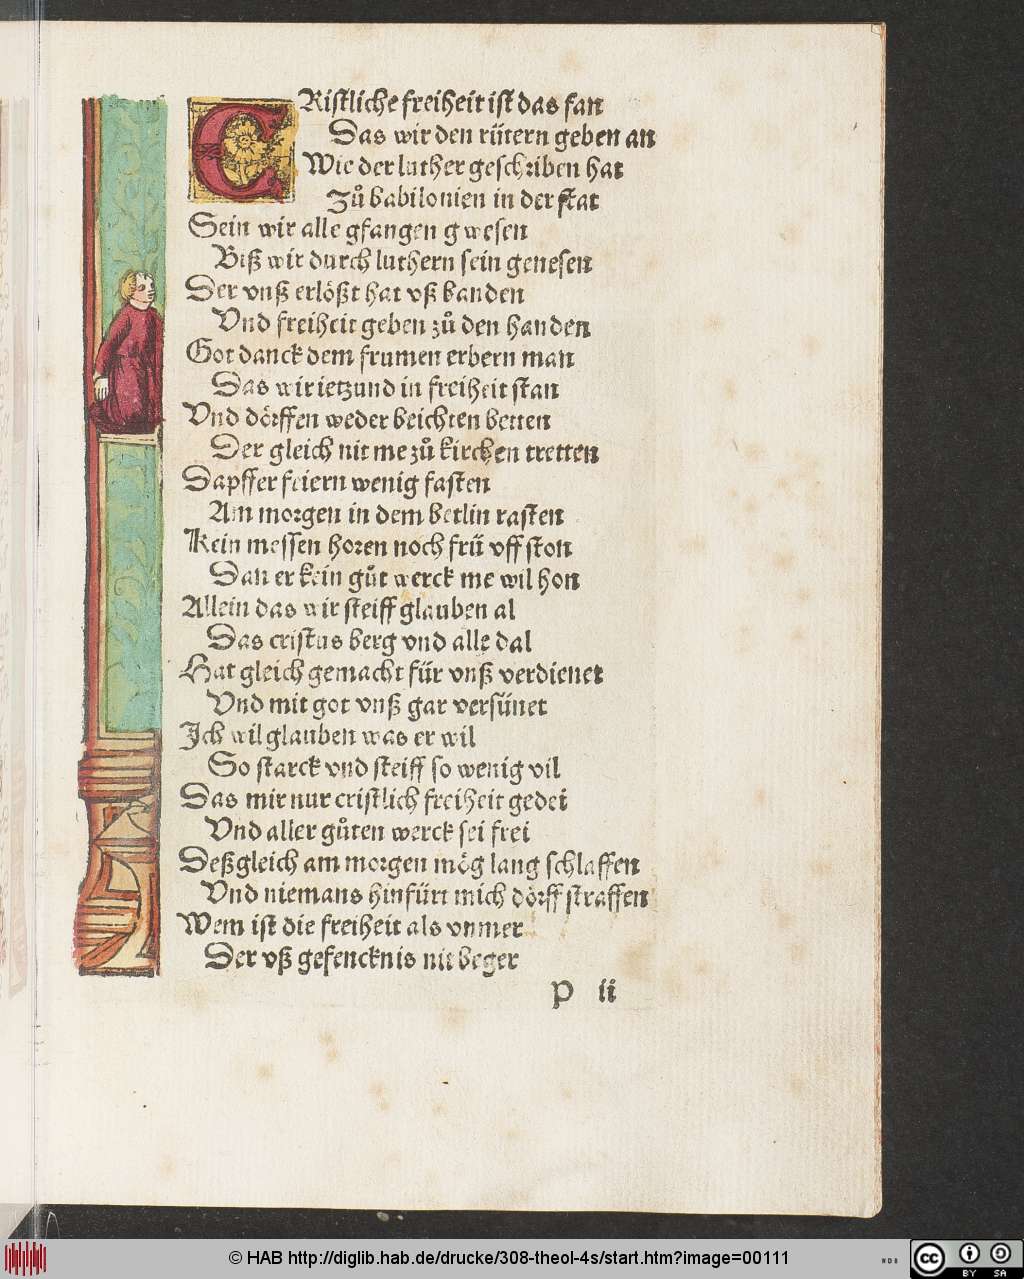 CRistliche freiheit ist das fan
Das wir den rütern geben an
Wie der luther geschriben hat
Zů babilonien in der stat
Sein wir alle gfangen gwesen
Biß wir durch luthern sein genesen
Der vnß erlößt hat vß banden
Vnd freiheit geben zů den handen
Got danck dem frumen erbern man
Das wir ietzund in freiheit stan
Vnd dörffen weder beichten betten
Der gleich nit me zů kirchen tretten
Dapffer feiern wenig fasten
Am morgen in dem betlin rasten
Kein messen horen noch frü vff ston
Dan er kein gůt werck me wil hon
Allein das wir steiff glauben al
Das cristus berg vnd alle dal
Hat gleich gemacht für vnß verdienet
Vnd mit got vnß gar versünet
Ich wil glauben was er wil
So starck vnd steiff so wenig vil
Das mir nur cristlich freiheit gedei
Vnd aller gůten werck sei frei
Deßgleich am morgen mög lang schlaffen
Vnd niemans hinfürt mich dörff straffen
Wem ist die freiheit als vnmer
Der vß gefencknis nit beger
P ii
© HAB http://diglib.hab.de/drucke/308-theol-4s/start.htm?image=00111
WDB
cc BY SA